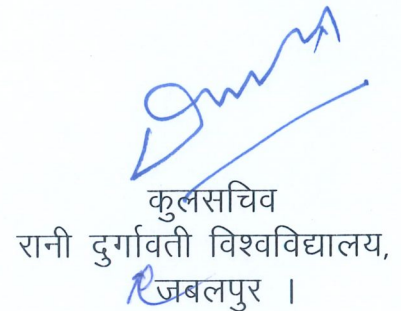 कुलसचिव
रानी दुर्गावती विश्वविद्यालय,
जबलपुर ।